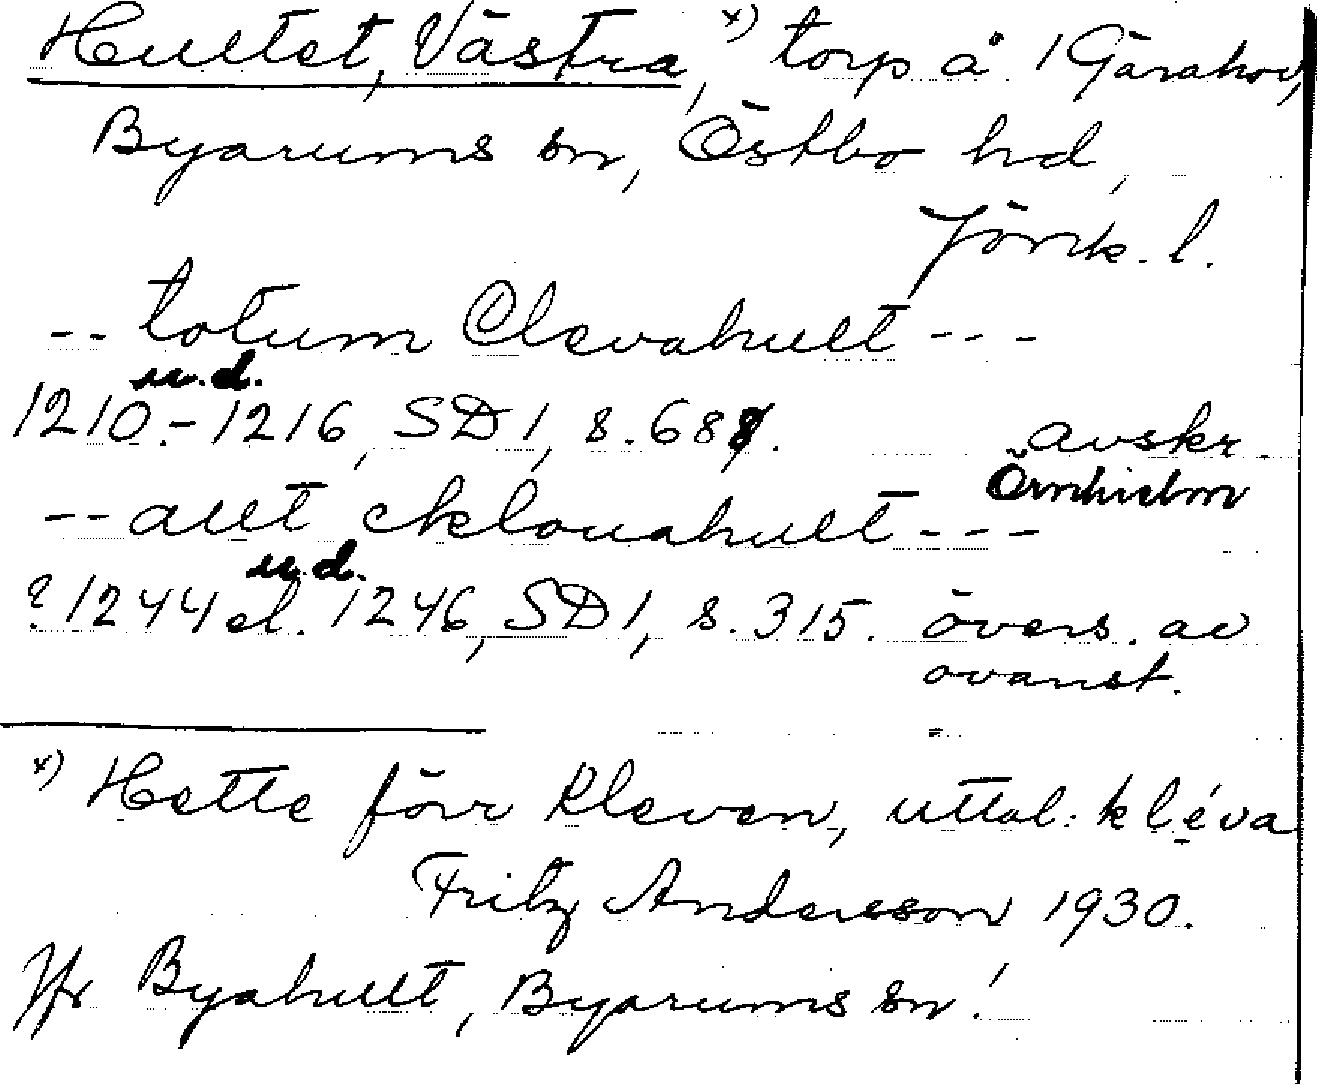 Hultet, Västra, x) torp å 1 Gärahov,
Byarums sn, Östbo hd,
Jönk. l.
-- totum Clevahult ---
u.d.
1210.-1216, SD 1, s. 687. avskr.
Örnhielm
-- allt cklouahult ---
u.d.
? 1244 el. 1246, SD 1, s. 315. övers. av
ovanst.
x) Hette förr Kleven, uttal: kléva
Fritz Andersson 1930.
Jfr Byahult, Byarums sn!